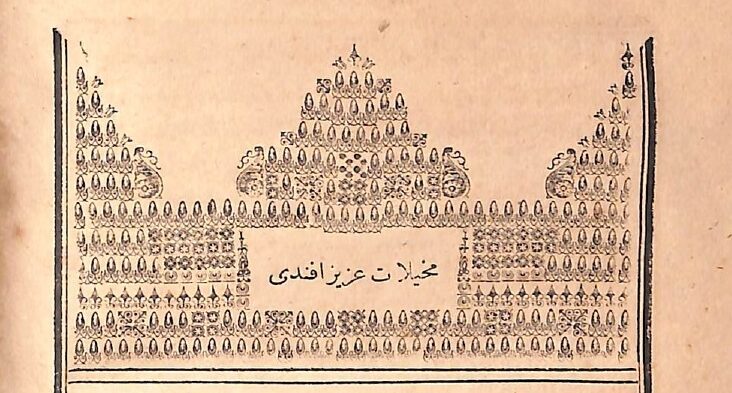 مخيلات عزيز افندى